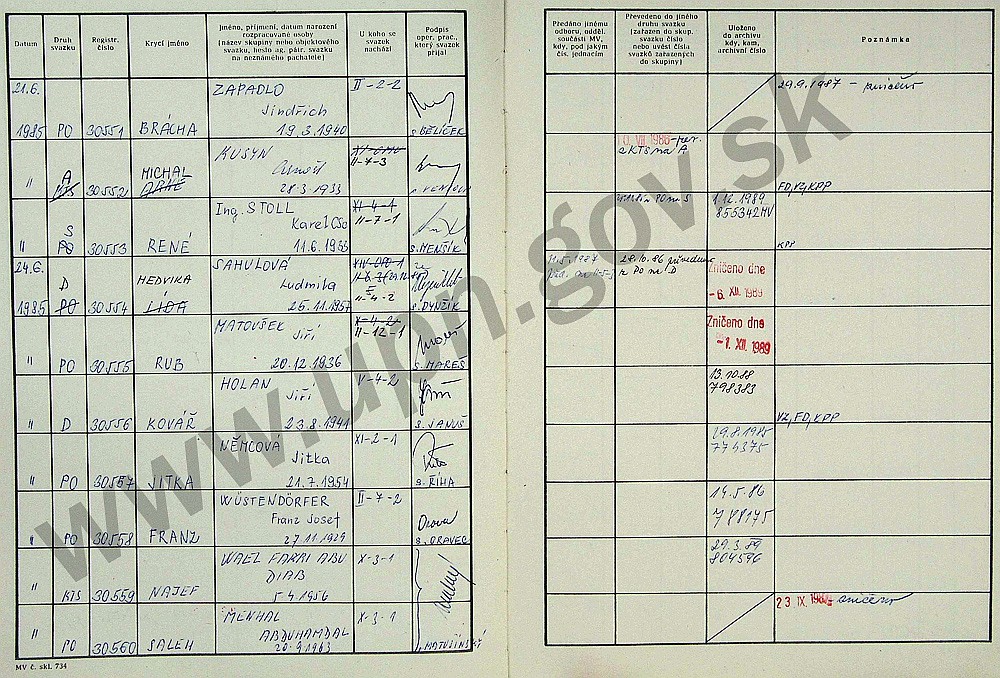 Datum
Druh svazku
Registr. číslo
Krycí jméno
Jméno, příjmení, datum narození
rozpracované osoby
(název skupiny nebo objektového
svazku, heslo ag. pátr. svazku
na neznámého pachatele)
U koho se
svazek
nachází
Podpis
oper. prac.,
který svazek
přijal
Předáno jinému
odboru, odděl.
součásti MV,
kdy, pod jakým
čís. jednacím
Převedeno do jiného
druhu svazku
(zařazen do skup.
svazku číslo
nebo uvést čísla
svazků zařazených
do skupiny)
Uloženo
do archivu
kdy, kam,
archivní číslo
Poznámka
21.6. ZAPADLO II-2-2 29.9.1987 - zničeno
Jindřich
1985 PO 30551 BRÁCHA 19.3.1940 s. BĚLÍČEK
KUSYN 10. VII 1986
A MICHAL II-7-3 z KTS na A
" 30552 28.3.1933 FD, VZ, KPP
Ing. STOLL XI-4-1 1.12.1989
S Karel CSc II-7-1 855342 MV
" PO 30553 RENÉ 11.6.1933 s. MENŠÍK KPP
24.6. SAHULOVÁ 11.5.1987 28.10.86 převedeno
D HEDVIKA Ludmila z PO na D Zničeno dne
1985 PO 30554 LÍDA 25.11.1957 II-4-2 -6. XII. 1989
MATOUŠEK X-4-2 Zničeno dne
Jiří II-12-1 -1. XII. 1989
" PO 30555 RUB 20.12.1936 s. MAREŠ
HOLAN V-4-2 13.10.88
Jiří 798383
" D 30556 KOVÁŘ 23.8.1941 s. JANUŠ VZ, FD, KPP
NĚMCOVÁ XI-2-1 29.8.1985
Jitka 774375
" PO 30557 JITKA 21.7.1954 s. ŘÍHA
WÜSTENDÖRFER II-7-2 14.5.86
Franz Josef 788175
" PO 30558 FRANZ 27.11.1929 s. ORAVEC
" WAEL FARRI ABU X-3-1 29.3.89
DIAB 804596
KTS 30559 NAJEF 5.4.1956
" MENHAL X-3-1 23. IX. - zničeno
ABDUHAMDAL
PO 30560 SALEH 20.9.1963 s. MATUŠINSKÝ
MV č. skl. 734
www.upn.gov.sk